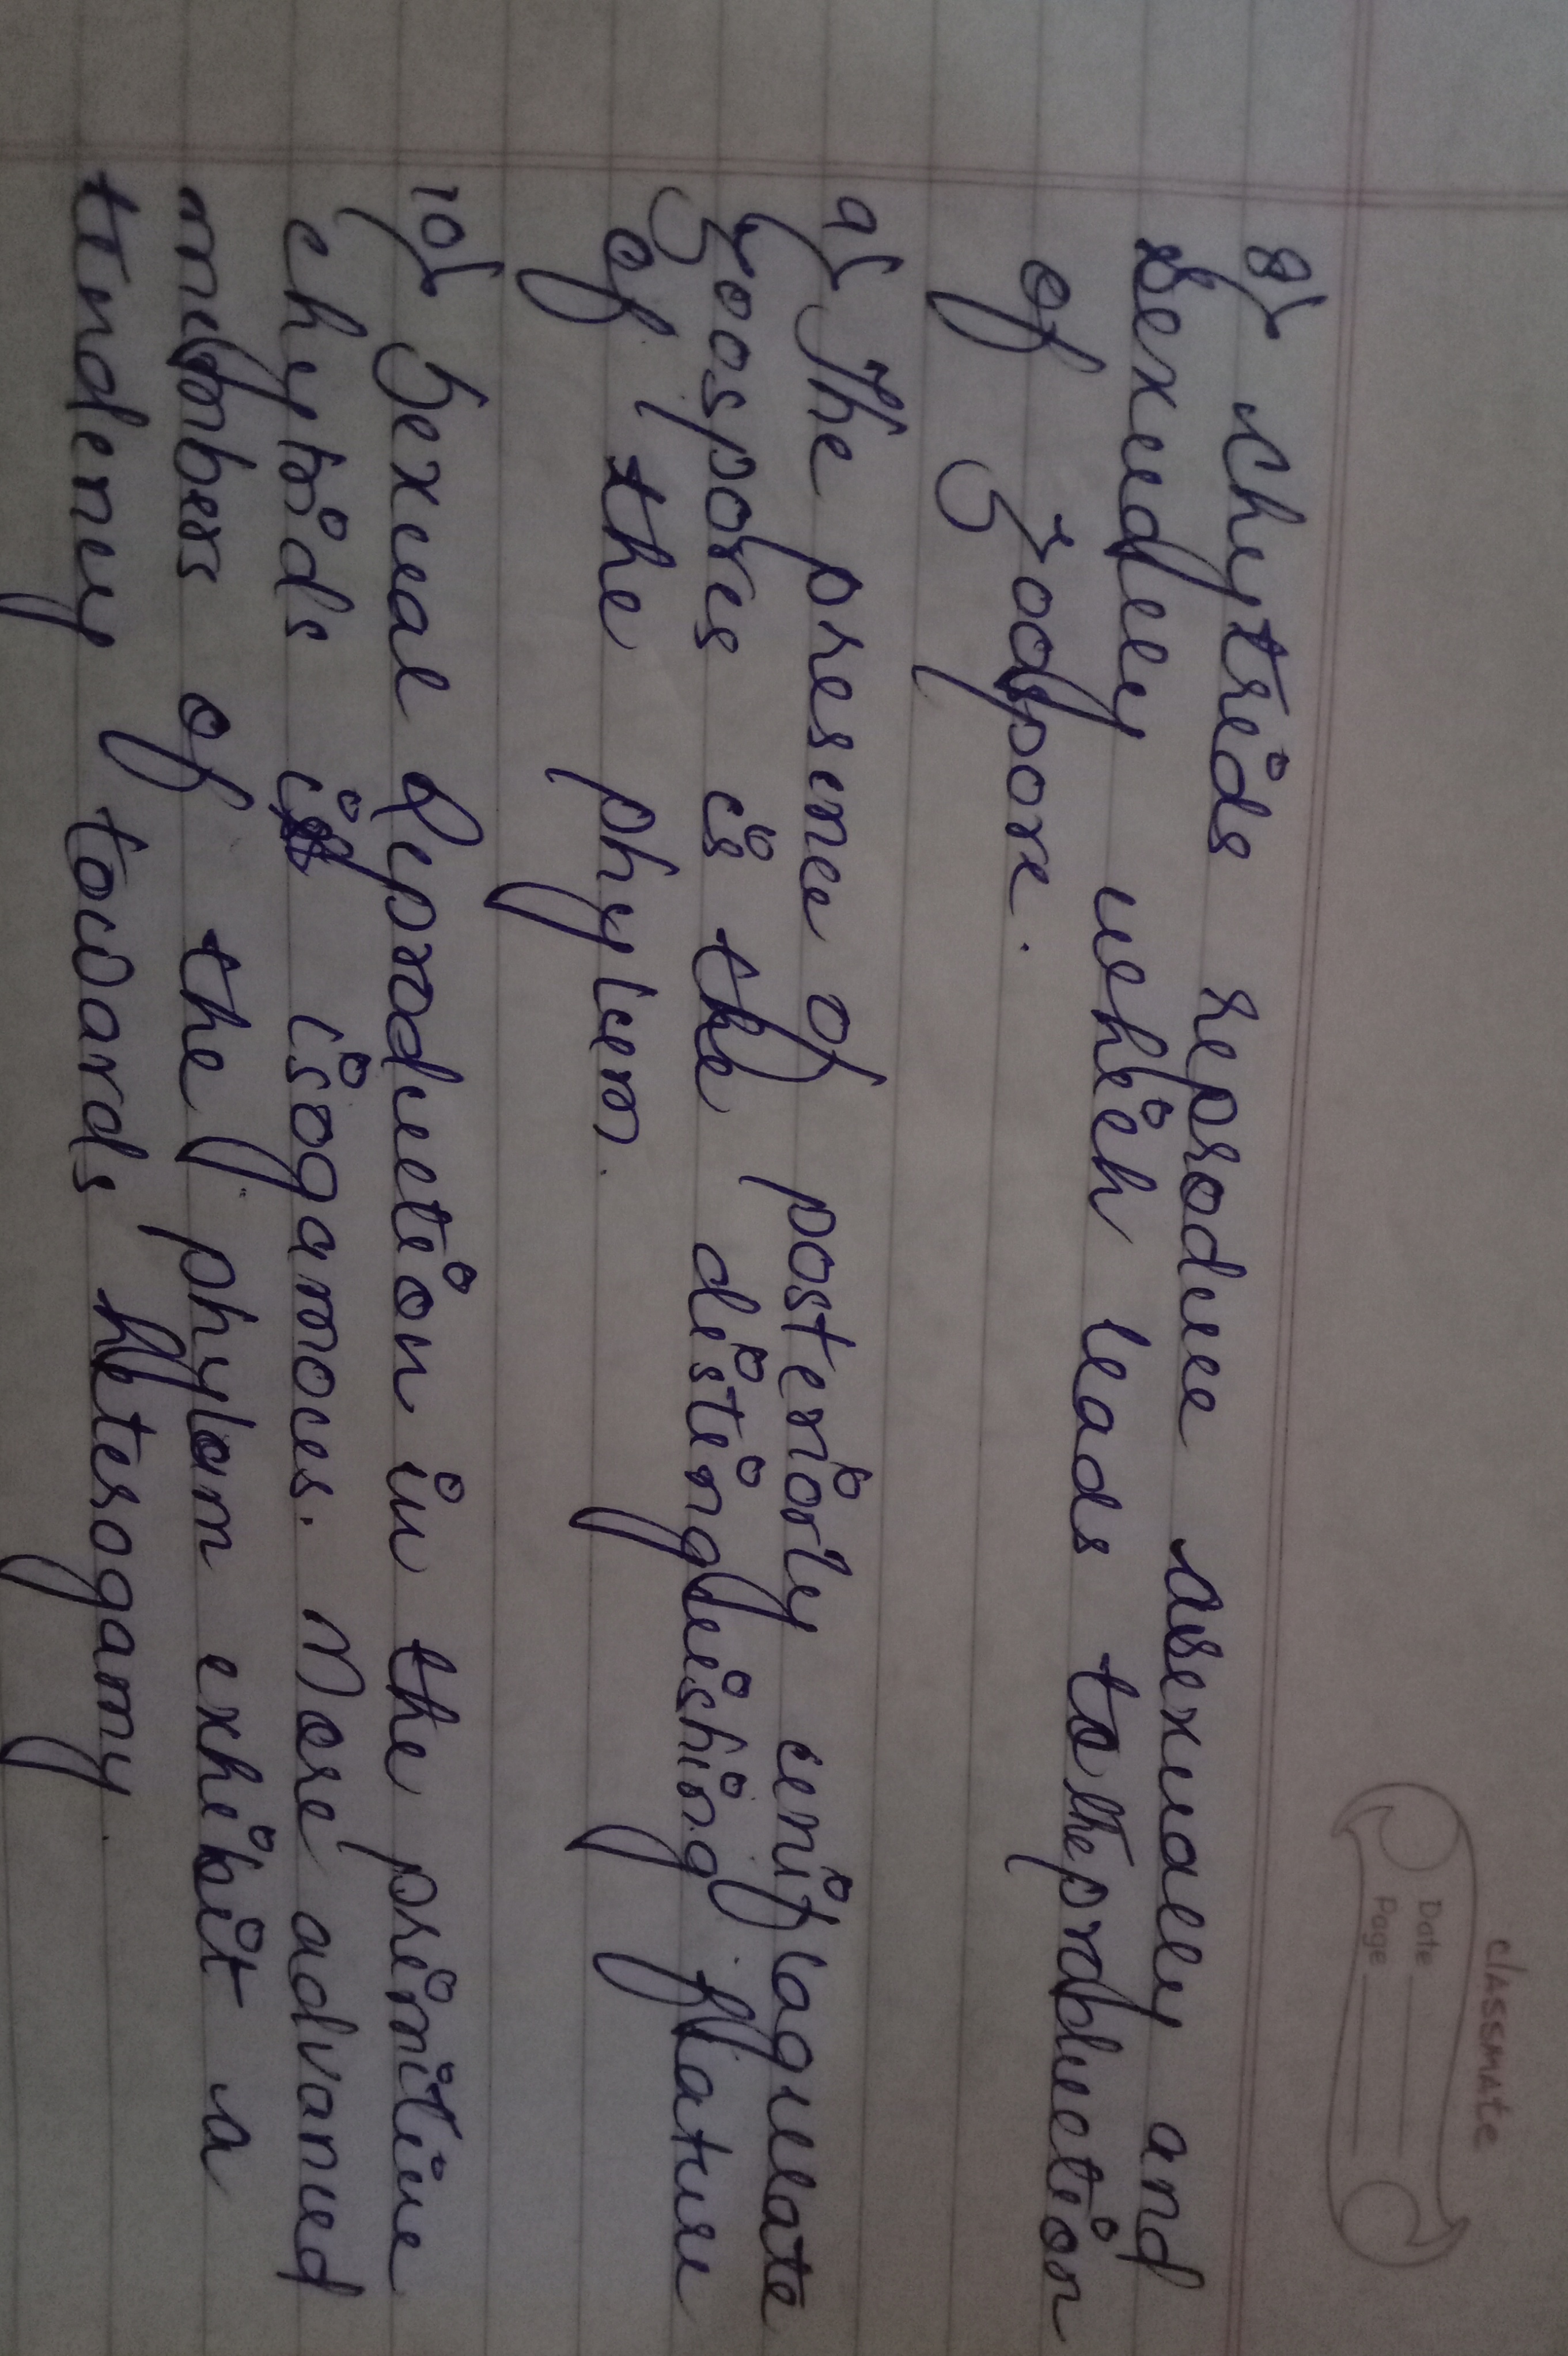 classmate
Date
Page
8} Chytrids reproduce asexually and
sexually which leads to the production
of zoospore.
9} The presence of posteriorly uniflagulate
zoospores is the distinguishing feature
of the phylum.
10} Sexual Reproduction in the primitive
chytrids is isogamous. More advanced
members of the phylum exhibit a
tendency towards heterogamy.